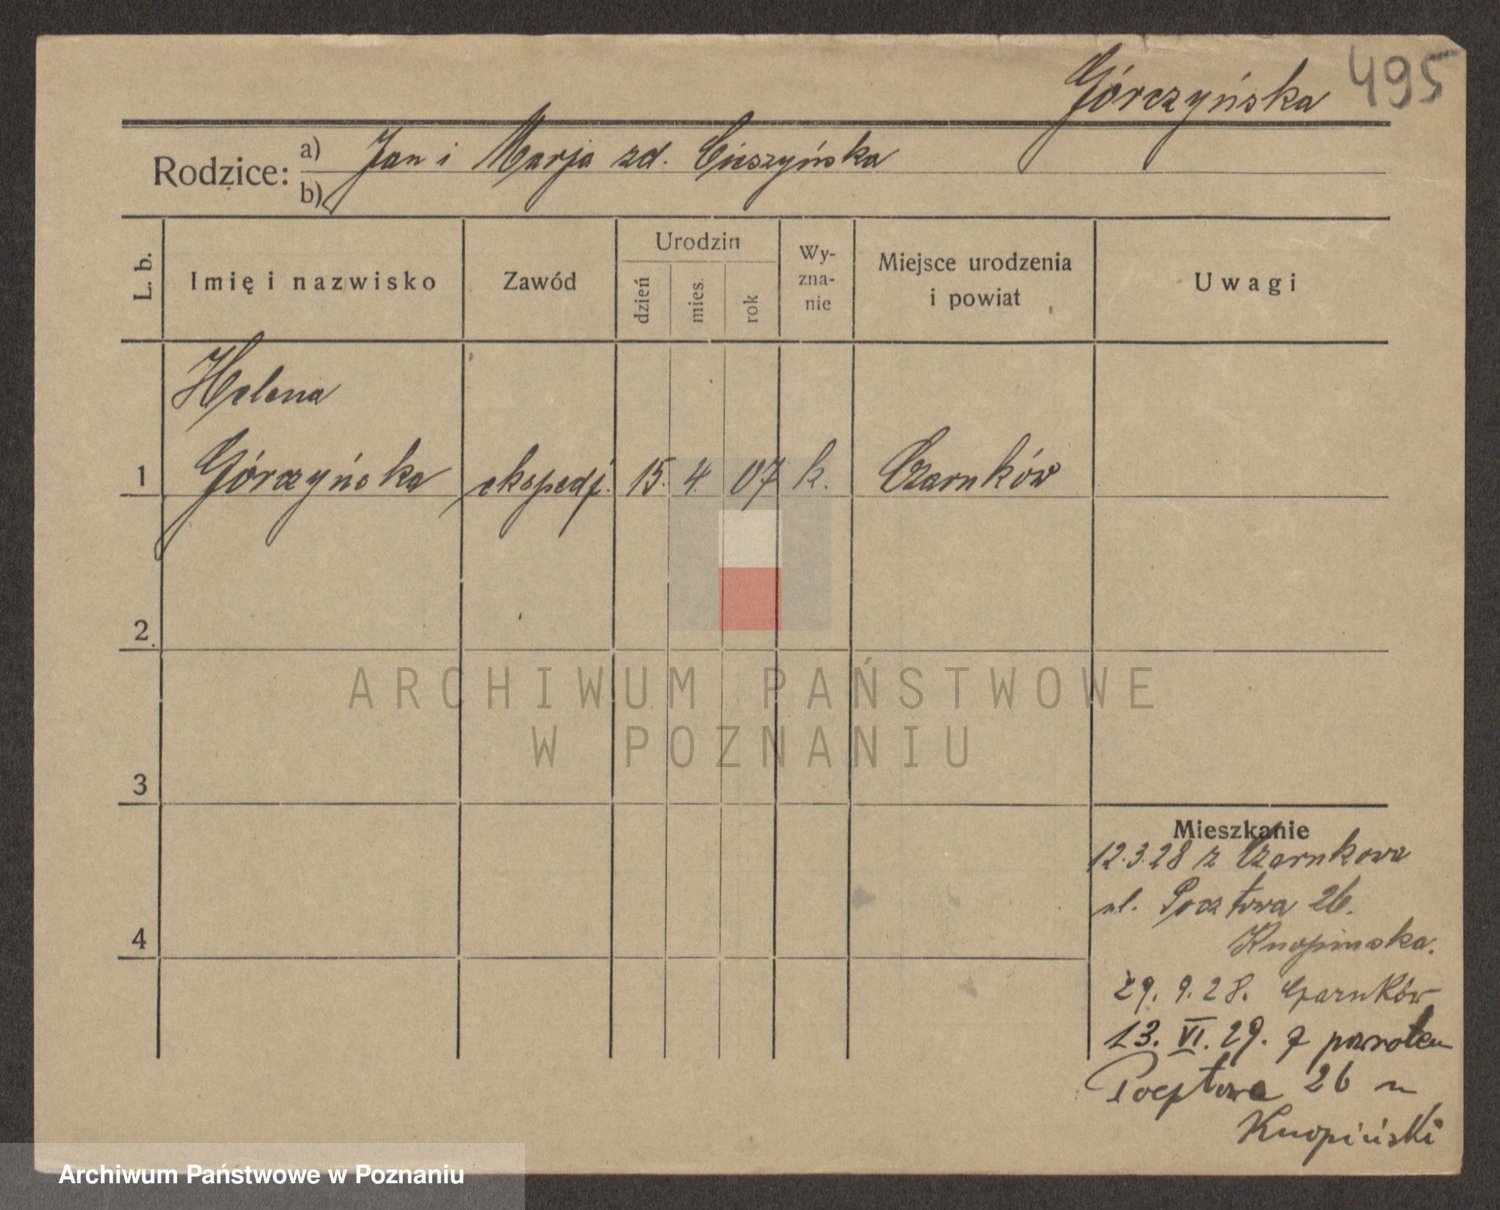 Górczyńska 495
Rodzice: a) Jan i Marja zd. Cieszyńska
b)
L. b.
Imię i nazwisko
Zawód
Urodzin
dzień
mies.
rok
Wy-
zna-
nie
Miejsce urodzenia
i powiat
Uwagi
Helena
1 Górczyńska ekspedj. 15. 4. 07 k. Czarnków
2
ARCHIWUM PAŃSTWOWE
W POZNANIU
3
Mieszkanie
12.3.28 z Czarnkowa
ul. Pocztowa 26.
Knopinska.
4
29. 9. 28. Czarnków
13. VI. 29. z powrotem
Pocztowa 26 u
Knopiński
Archiwum Państwowe w Poznaniu